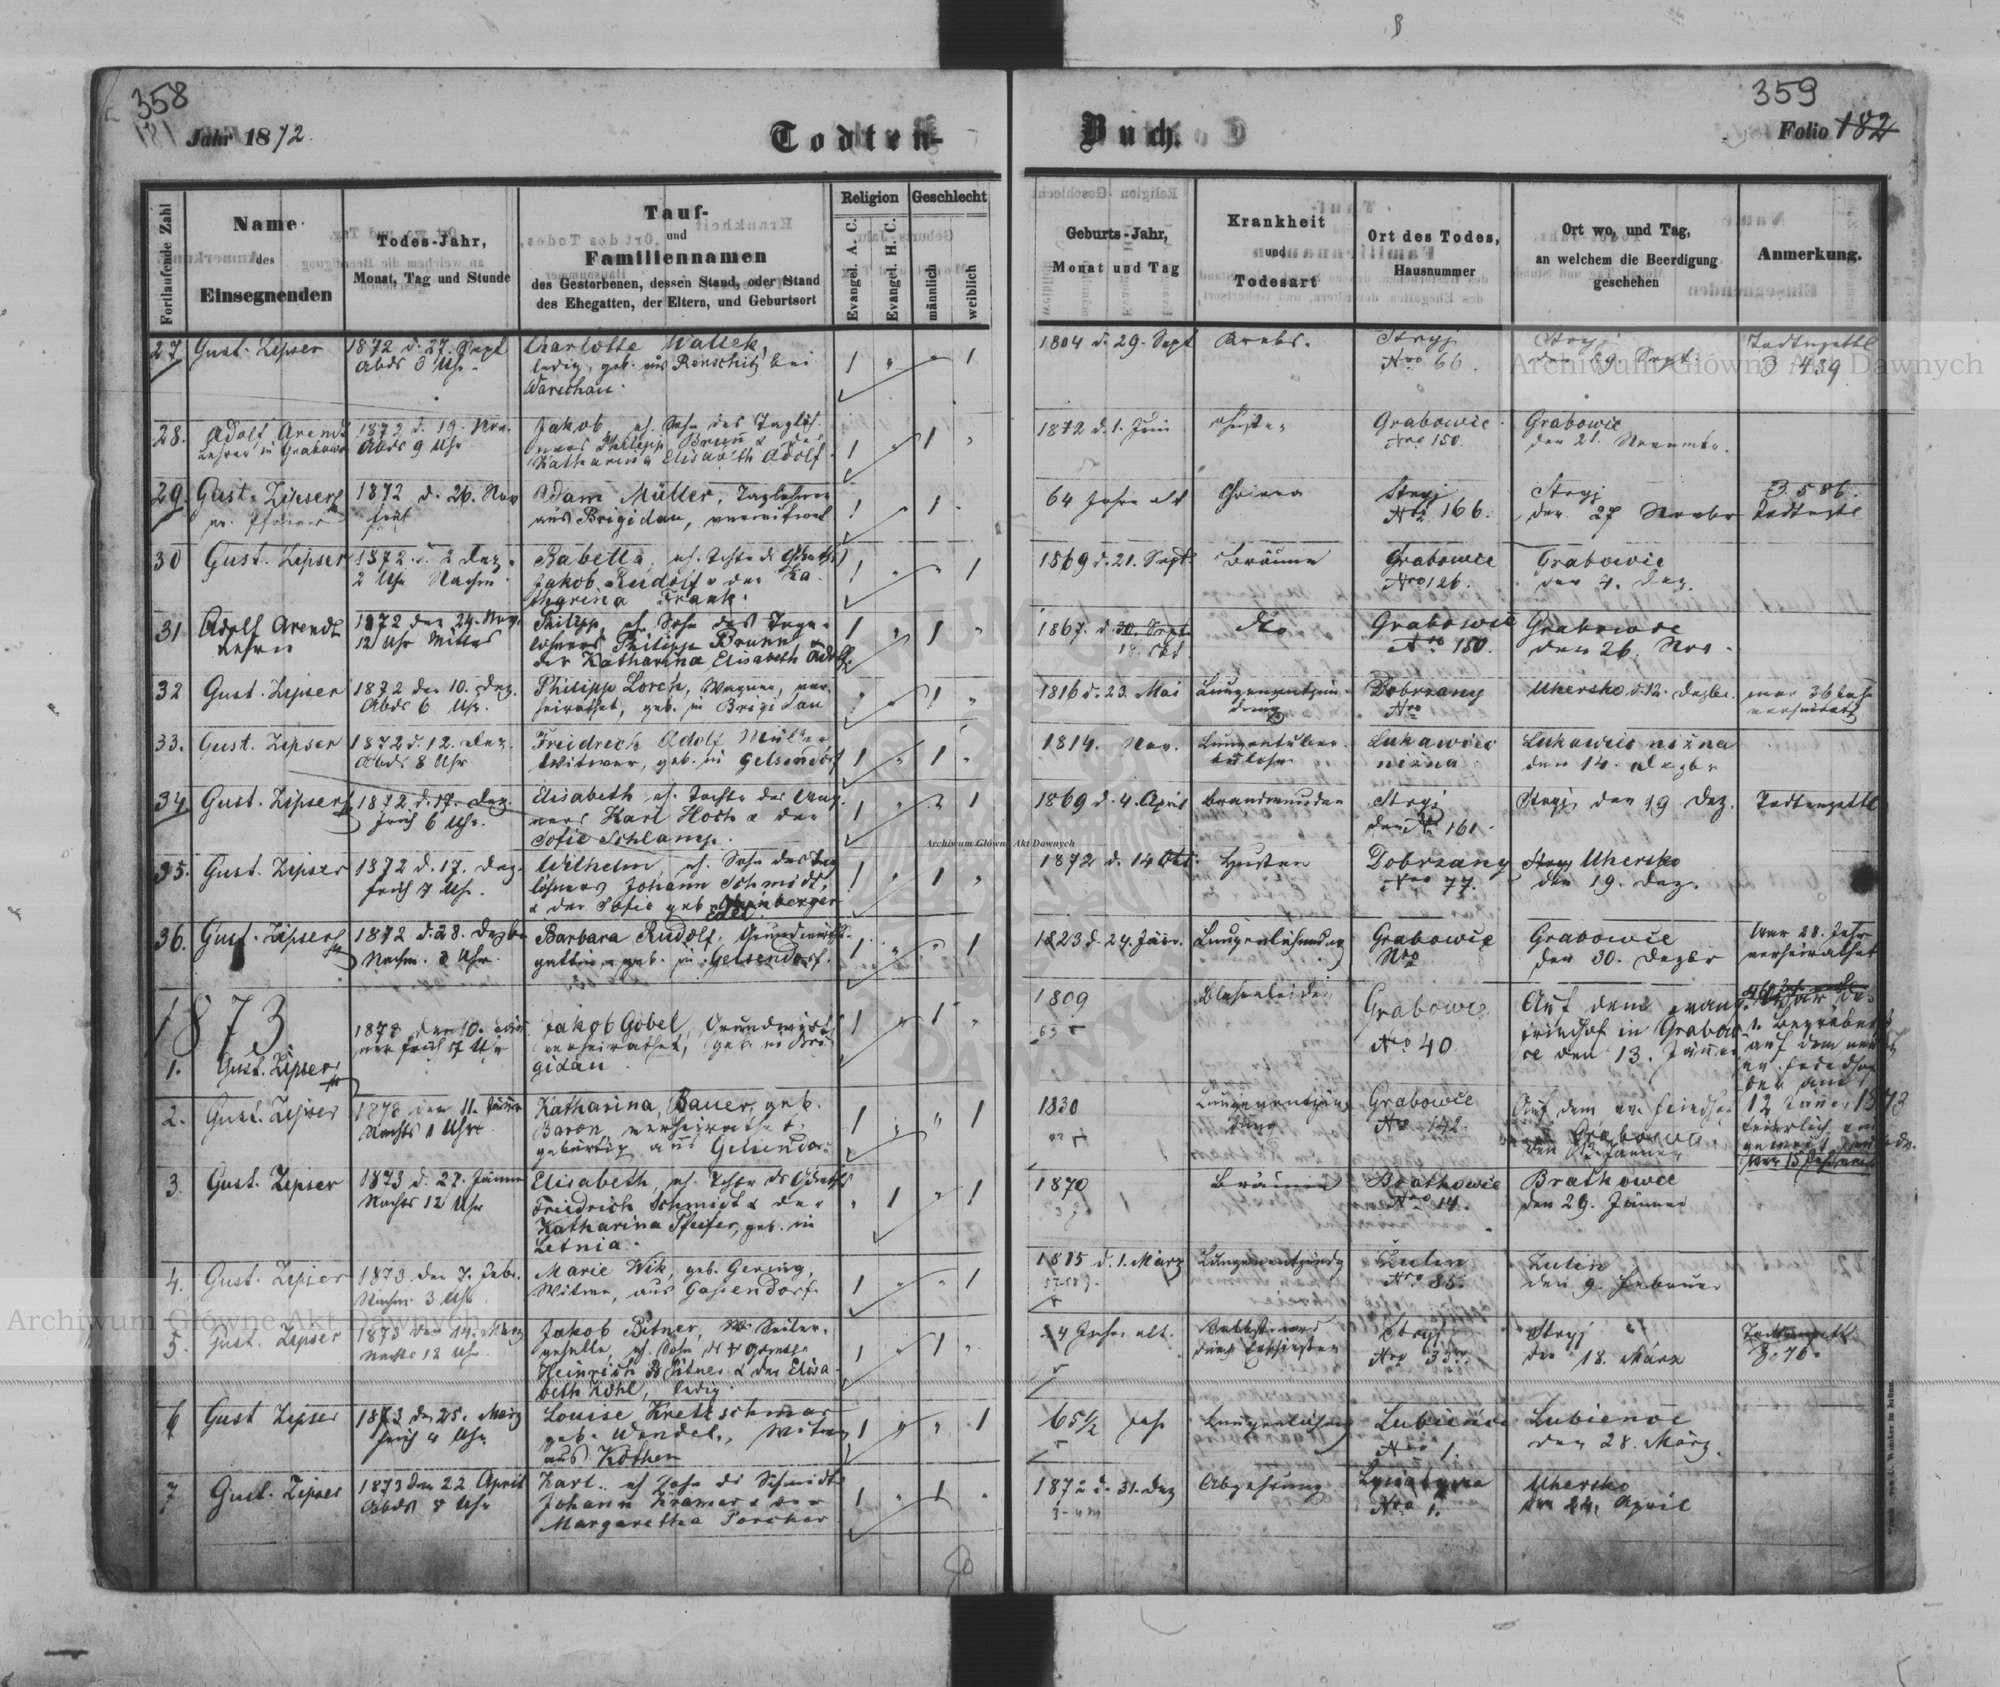 358
359
181
Jahr 1872.
Todten-
Buch.
Folio 182
Fortlaufende Zahl
Name
des
Einsegnenden
Todes-Jahr,
Monat, Tag und Stunde
Tauf-
und
Familiennamen
des Gestorbenen, dessen Stand, oder Stand
des Ehegatten, der Eltern, und Geburtsort
Religion
Evangel. A. C.
Evangel. H. C.
Geschlecht
männlich
weiblich
Geburts-Jahr,
Monat und Tag
Krankheit
und
Todesart
Ort des Todes,
Hausnummer
Ort wo, und Tag,
an welchem die Beerdigung
geschehen
Anmerkung.
27 Gust. Zipser
1872 d. 27. Sept
Abds 6 Uhr
Charlotte Wallek,
ledig, geb. aus Renschitz bei
Warschau.
1 " " 1
1804 d. 29. Sept
Krebs.
Stryj
Nro 66.
Stryj
den 29. Sept.
Todtenzettl
3 439
28. Adolf Arendt
Lehrer in Grabowce
1872 d. 19. Nov.
Abds 9 Uhr
Jakob, eh. Sohn des Taglöh-
ners Philipp Brunn & der
Katharina Elisabeth Adolf.
1 " 1 "
1872 d. 1. Juni
Husten
Grabowce
Nro 150.
Grabowce
den 21. November
29. Gust. Zipser
ev. Pfarrer
1872 d. 26. Nov
früh
Adam Müller, Taglöhner
aus Brigidau, verwitwet
1 " 1 "
64 Jahre alt
Cholera
Stryj
Nro 166.
Stryj
den 27 Novbr
3 586.
Todtenzettl
30 Gust. Zipser
1872 d. 2 Dez.
2 Uhr Nachm.
Babetta, eh. Tochter des Grundw.
Jakob Rudolf & der Ka-
tharina Frank.
1 " " 1
1869 d. 21. Sept.
Bräune
Grabowce
Nro 126.
Grabowce
den 4. Dez.
31 Adolf Arendt
Lehrer
1872 den 24. Nov.
12 Uhr Mittags
Philipp, eh. Sohn des Tage-
löhners Philipp Brunn &
der Katharina Elisabeth Adolf.
1 " 1 "
1867. d. 30. Sept.
18. Okt.
dto
Grabowce
Nro 150.
Grabowce
den 26. Nov.
32 Gust. Zipser
1872 den 10. Dez.
Abds 6 Uhr.
Philipp Lorch, Wagner, ver-
heirathet, geb. in Brigidau
1 " 1 "
1816 d. 23. Mai
Lungenentzün-
dung
Dobrzany
Nro
Uhersko d. 12. Dezbr.
war 36 Jahre
verheirathet
33. Gust. Zipser
1872 d. 12. Dez.
Abds 8 Uhr
Friedrich Adolf Müller
Witwer, geb. in Gelsendorf
1 " 1 "
1814. Nov.
Lungentuber-
kulose
Lukawice
nizna
Lukawice nizna
den 14. Dezbr
34 Gust. Zipser
1872. d. 17. Dez.
früh 6 Uhr.
Elisabeth eh. Tochter des Wag-
ners Karl Hoch & der
Sofie Schlamp.
1 " " 1
1869 d. 4. April
Brandwunden
Stryj
Nro 161.
Stryj den 19 Dez.
Todtenzettl
35. Gust. Zipser
1872 d. 17. Dez.
früh 7 Uhr.
Wilhelm, eh. Sohn des Tag-
löhners Johann Schmidt,
& der Sofie geb.
Edel.
1 " 1 "
1872 d. 14 Okt.
Husten
Dobrzany
Nro 77.
Stryj Uhersko
den 19. Dez.
36. Gust. Zipser
1872 d. 28. Dezbr
Nachm. 2 Uhr.
Barbara Rudolf, Grundwirths-
gattin, geb. in Gelsendorf.
1 " " 1
1823 d. 24. Jän.
Lungenlähmung
Grabowce
Nro
Grabowce
den 30. Dezbr
War 28. Jahr
verheirathet
1873
1. Gust. Zipser
1873 den 10. Jän-
ner früh 7 Uhr
Jakob Göbel, Grundwirth,
verheirathet, geb. in Bri-
gidau.
1 " 1 "
1809
63
Blasenleiden
Grabowce
Nro 40
Auf dem evang.
Friedhof in Grabow-
ce den 13. Jänner
auf dem neuen
ev. Friedhof
der am
12 Jänner 1873
feierlich ein-
geweiht wurde.
2. Gust. Zipser
1873 den 11. Jänner
Nachts 1 Uhr
Katharina Bauer, geb.
Baron, verheirathet,
gebürtig aus Gelsendorf
1 " " 1
1830
Lungenentzün-
dung
Grabowce
Nro 142.
Auf dem ev. Friedhof
in Grabowce
den 13. Jänner
3. Gust. Zipser
1873 d. 27. Jänner
Nachts 12 Uhr
Elisabeth, eh. Tochter des Grundw.
Friedrich Schmidt & der
Katharina Pfeifer, geb. in
Letnia.
" 1 " 1
1870
3 J.
Bräune
Bratkowce
Nro 14.
Bratkowce
den 29. Jänner
4. Gust. Zipser
1873 den 7. Febr.
Nachm. 3 Uhr
Marie Wik, geb. Gering,
Witwe, aus Gassendorf.
1 " " 1
1815 d. 1. März
Lungenentzündg
Zulin
Nro 85.
Zulin
den 9. Februar
5. Gust. Zipser
1873 den 14. März
Nachts 12 Uhr.
Jakob Bitner, Seiler-
geselle, eh. Sohn des
Heinrich Bitner & der Elisa-
beth Kohl, ledig.
1 " 1 "
Jahre alt.
Selbstmord
durch Erschießen
Stryj
Nro
Stryj
den 18. März
Todtenzettl
3. 76.
6 Gust Zipser
1873 den 25. März
früh 4 Uhr
Louise Kretschmar
geb. Wendel, Witwe
aus Köthen
1 " " 1
65 1/2 Jahr
Lungenlähmung
Lubience
Nro 1.
Lubience
den 28. März.
7 Gust. Zipser
1873 den 22 April
Abds 8 Uhr
Karl, eh Sohn des Schmidt
Johann Kramer & der
Margarettha Porcher
1 " 1 "
1872 d. 31. Dez
Abzehrung
Nro 1.
Uhersko
den 24. April
Archiwum Główne Akt Dawnych
Archiwum Główne Akt Dawnych
Archiwum Główne Akt Dawnych